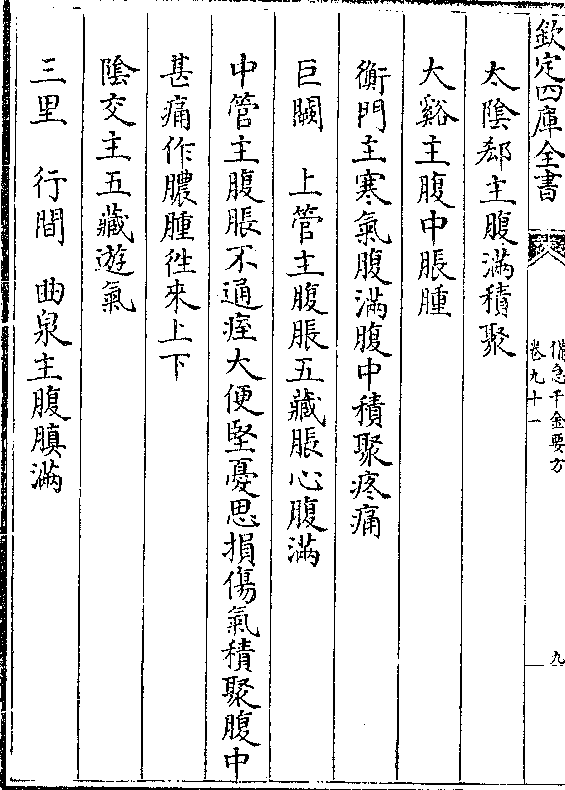 欽定四庫全書
備急千金要方
卷九十一
九
太陰郄主腹滿積聚
大谿主腹中脹腫
衝門主寒氣腹滿腹中積聚疼痛
巨闕　上管主腹脹五藏脹心腹滿
中管主腹脹不通疰大便堅憂思損傷氣積聚腹中
甚痛作膿腫徃來上下
陰交主五藏遊氣
三里　行間　曲泉主腹䐜滿